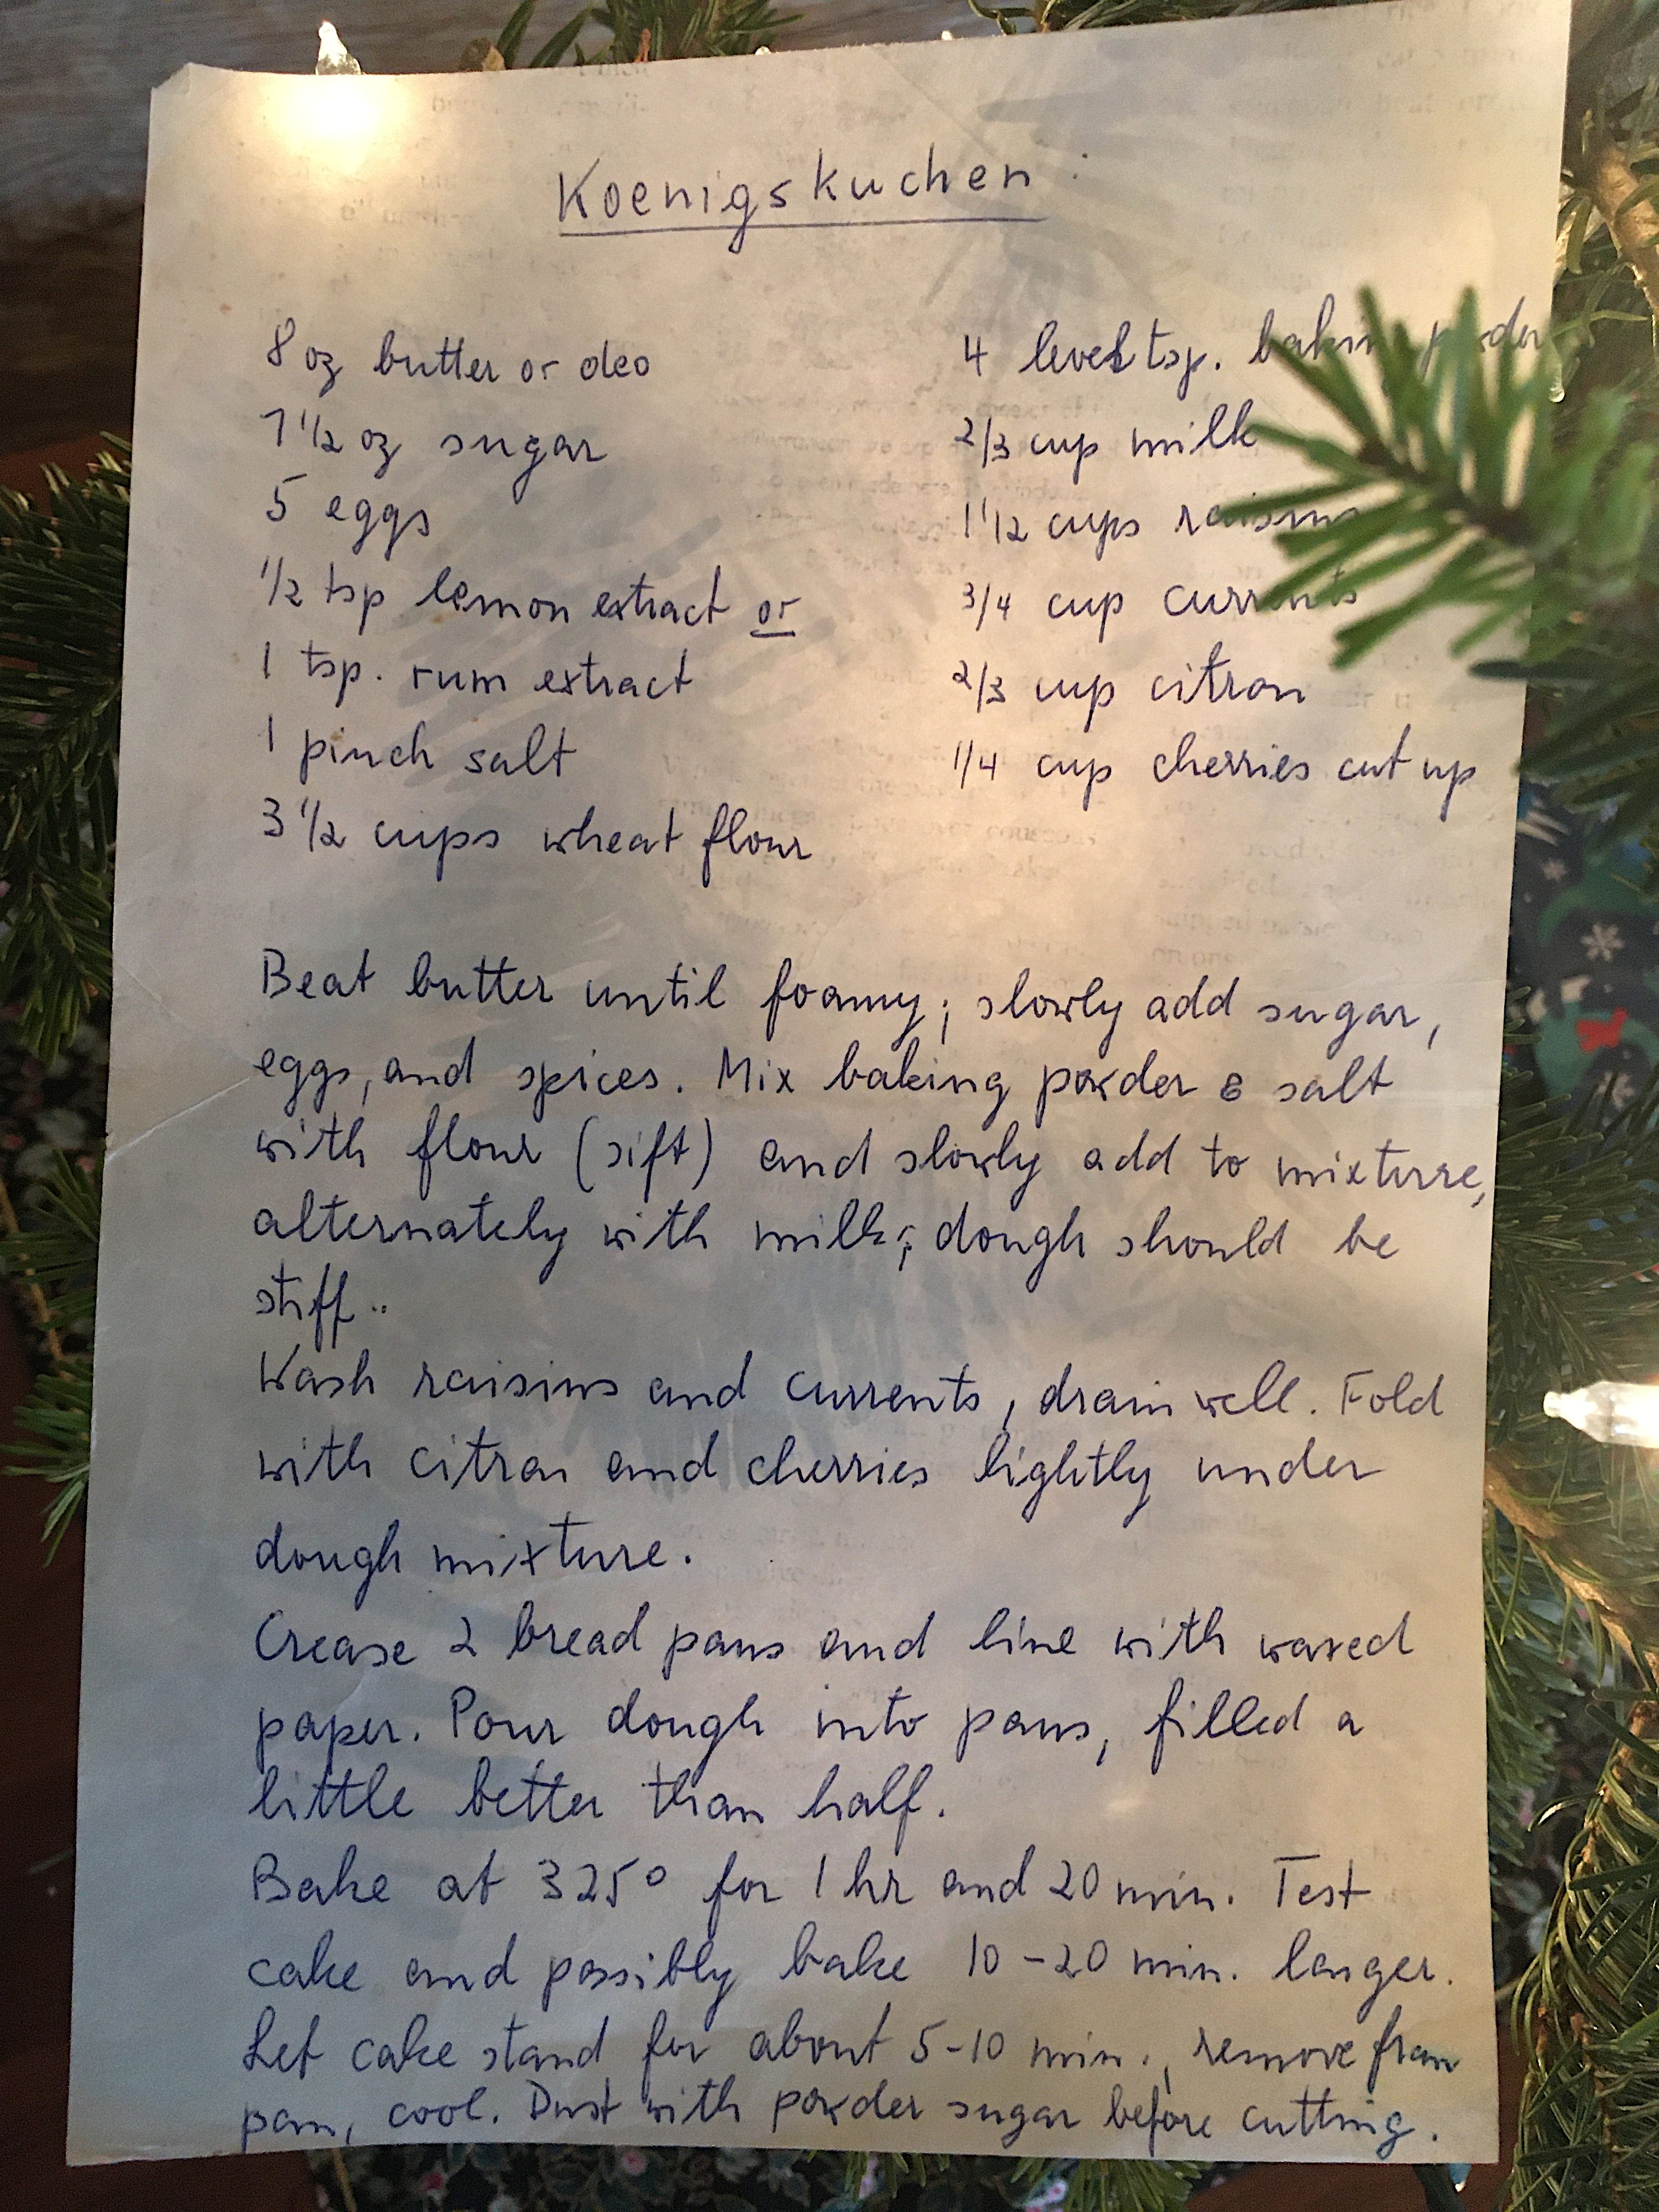 Koenigskuchen
8 oz butter or oleo
7 1/2 oz sugar
5 eggs
1/2 tsp lemon extract or
1 tsp. rum extract
1 pinch salt
3 1/2 cups wheat flour
4 level tsp. baking powder
2/3 cup milk
1 1/2 cups raisins
3/4 cup currents
2/3 cup citron
1/4 cup cherries cut up
Beat butter until foamy; slowly add sugar,
eggs, and spices. Mix baking powder & salt
with flour (sift) and slowly add to mixture,
alternately with milk; dough should be
stiff..
Wash raisins and currents, drain well. Fold
with citron and cherries lightly under
dough mixture.
Grease 2 bread pans and line with waxed
paper. Pour dough into pans, filled a
little better than half.
Bake at 325° for 1 hr and 20 min. Test
cake and possibly bake 10-20 min. longer.
Let cake stand for about 5-10 min., remove from
pan, cool. Dust with powder sugar before cutting.